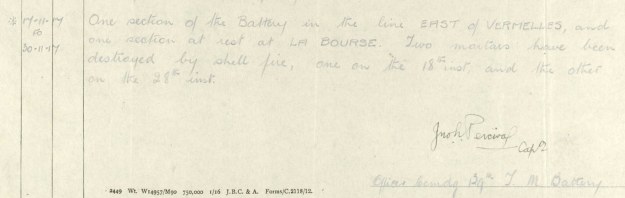 17-11-17 One section of the Battery in the line EAST of VERMELLES, and
to one section at rest at LA BOURSE. Two mortars have been
30-11-17 destroyed by shell fire, one on the 18th inst, and the other
on the 28th inst.
Percival
Capt.
Officer Comdg T M Battery
2449 Wt. W14957/M90 750,000 1/16 J.B.C. & A. Forms/C.2118/12.